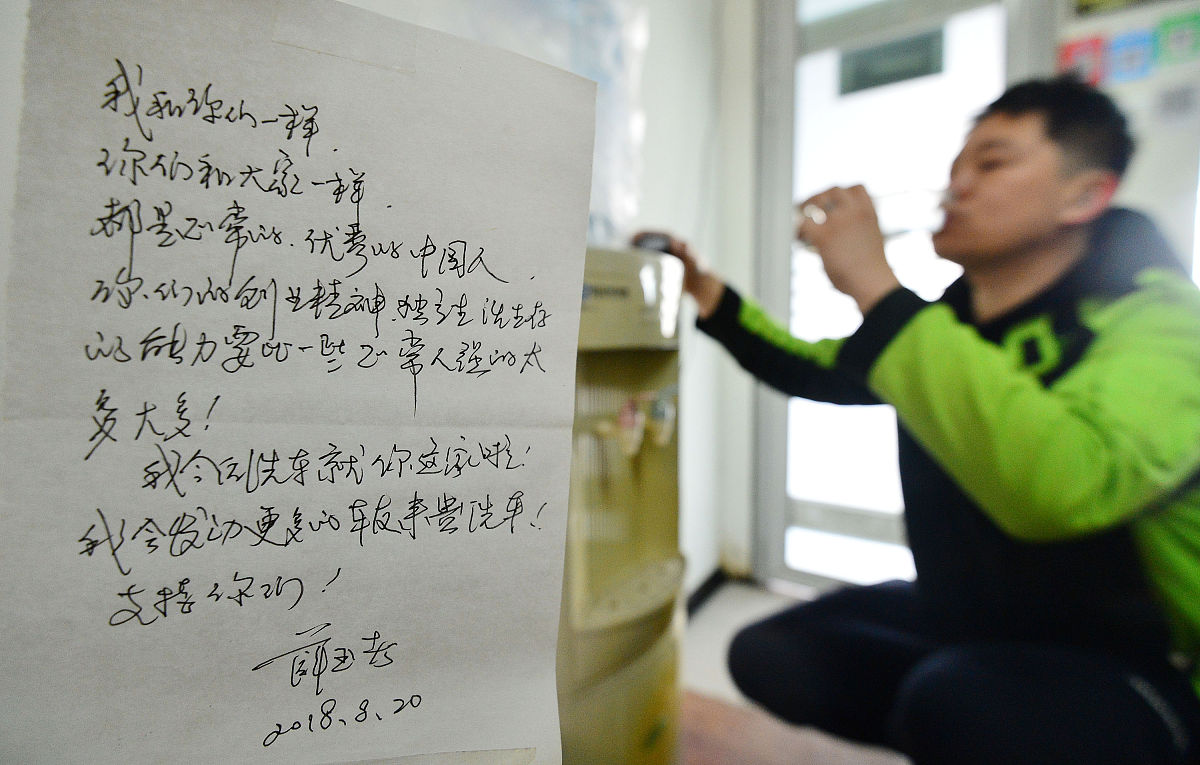 我和你们一样.
你们和大家一样.
都是正常的.优秀的中国人.
你们的创业精神.独立生活生存
的能力要比一些正常人强的太
多太多!
我今后洗车就你这家啦!
我会发动更多的车友来贵洗车!
支持你们!
薛玉
2018.8.20